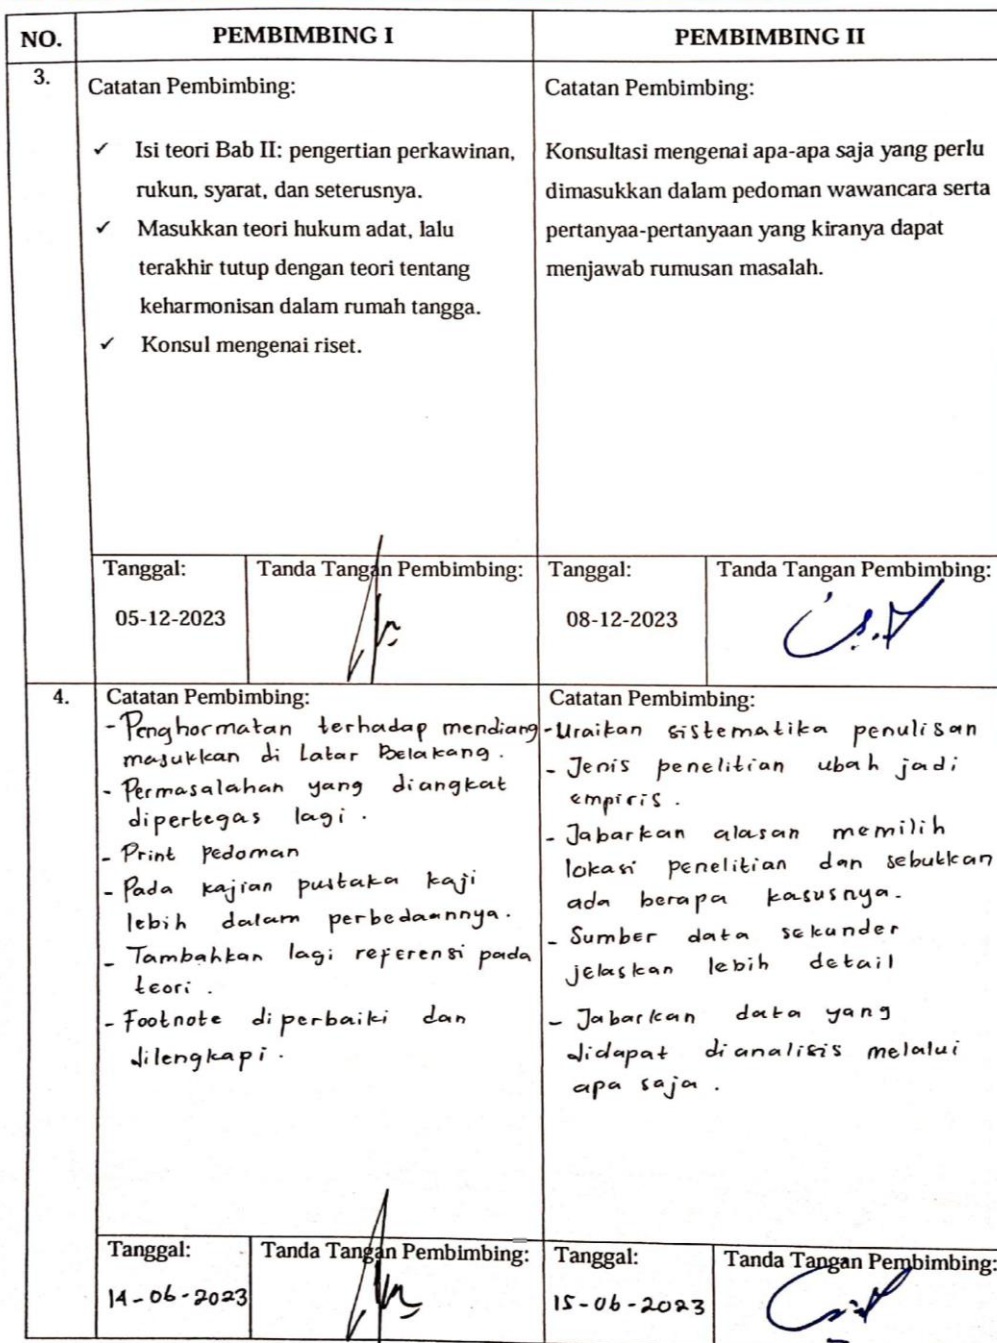 NO. PEMBIMBING I PEMBIMBING II
3.
Catatan Pembimbing:
✓ Isi teori Bab II: pengertian perkawinan,
rukun, syarat, dan seterusnya.
✓ Masukkan teori hukum adat, lalu
terakhir tutup dengan teori tentang
keharmonisan dalam rumah tangga.
✓ Konsul mengenai riset.
Catatan Pembimbing:
Konsultasi mengenai apa-apa saja yang perlu
dimasukkan dalam pedoman wawancara serta
pertanyaa-pertanyaan yang kiranya dapat
menjawab rumusan masalah.
Tanggal: Tanda Tangan Pembimbing: Tanggal: Tanda Tangan Pembimbing:
05-12-2023 08-12-2023
4.
Catatan Pembimbing:
- Penghormatan terhadap mendiang
masukkan di Latar Belakang.
- Permasalahan yang diangkat
dipertegas lagi.
- Print Pedoman
- Pada kajian pustaka kaji
lebih dalam perbedaannya.
- Tambahkan lagi referensi pada
teori.
- Footnote diperbaiki dan
dilengkapi.
Catatan Pembimbing:
- Uraikan sistematika penulisan
- Jenis penelitian ubah jadi
empiris.
- Jabarkan alasan memilih
lokasi penelitian dan sebutkan
ada berapa kasusnya.
- Sumber data sekunder
jelaskan lebih detail
- Jabarkan data yang
didapat dianalisis melalui
apa saja.
Tanggal: Tanda Tangan Pembimbing: Tanggal: Tanda Tangan Pembimbing:
14-06-2023 15-06-2023